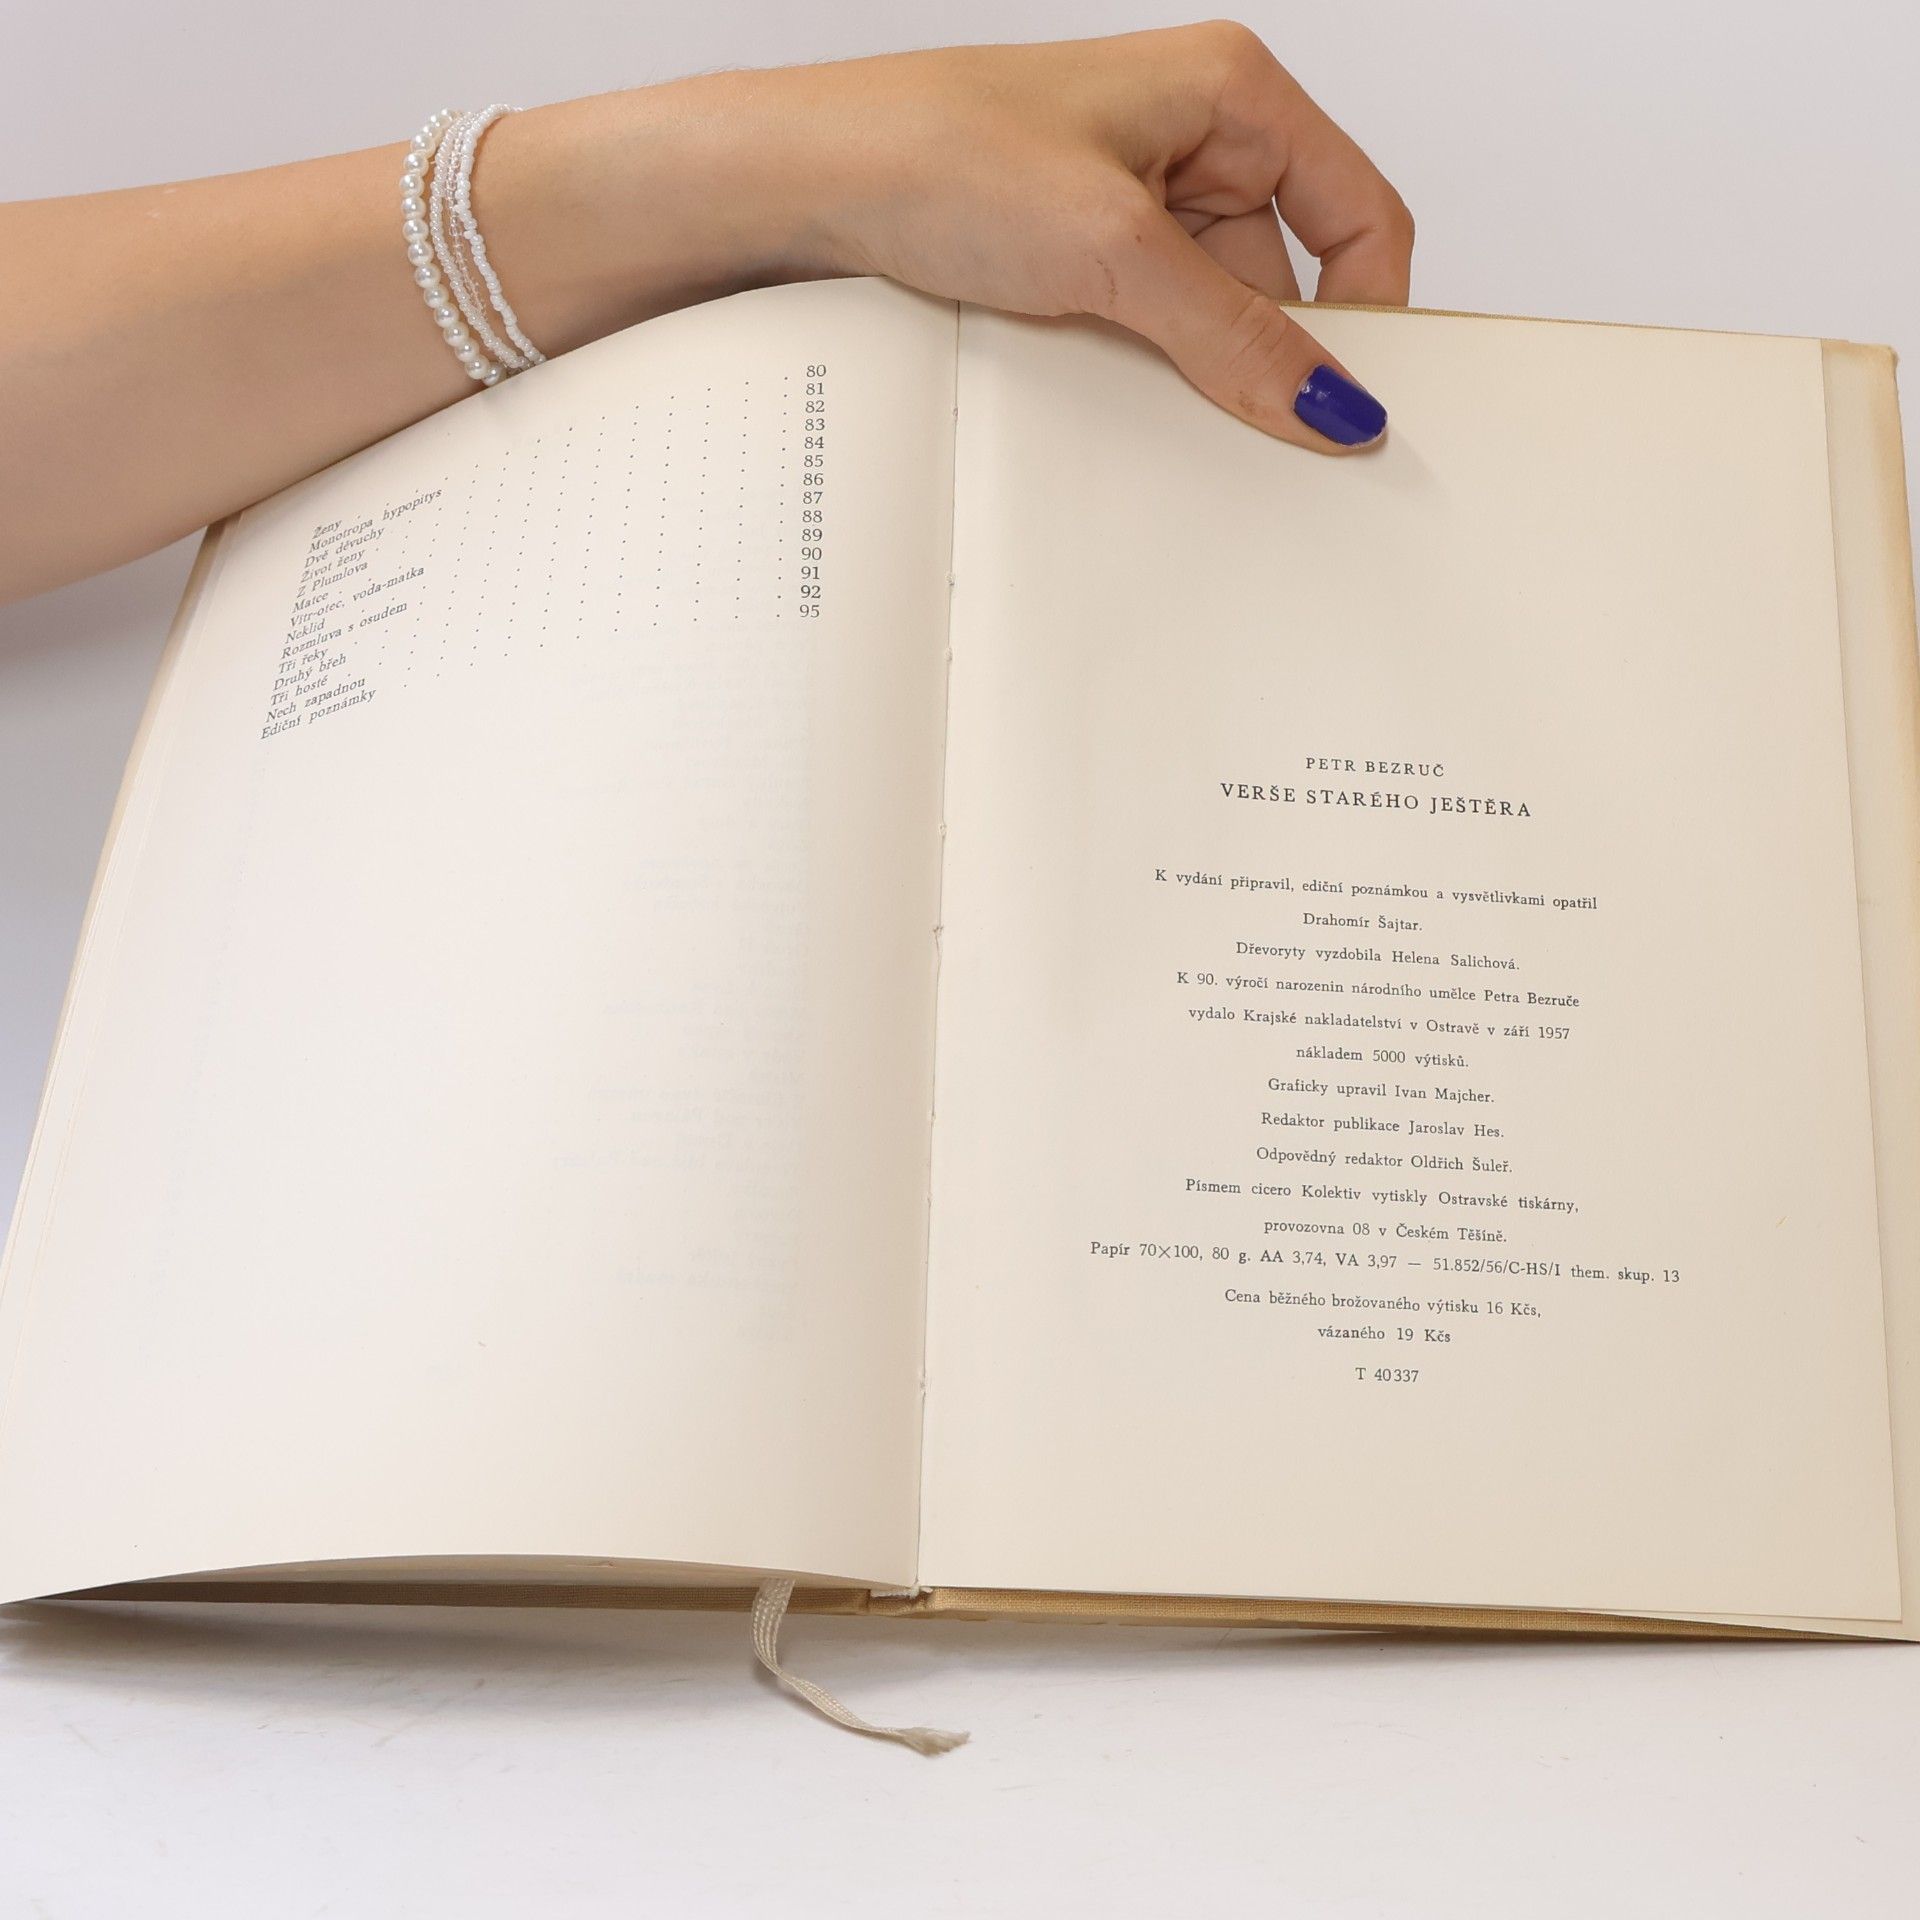 Ženy . . . . . . . . . . . . . 80
Monotropa hypopitys . . . . . . . . . . 81
Dvě děvuchy . . . . . . . . . . . . 82
Život ženy . . . . . . . . . . . . 83
Z Plumlova . . . . . . . . . . . . 84
Matce . . . . . . . . . . . . . 85
Vítr-otec, voda-matka . . . . . . . . . . 86
Neklid . . . . . . . . . . . . . 87
Rozmluva s osudem . . . . . . . . . . . 88
Tři řeky . . . . . . . . . . . . . 89
Druhý břeh . . . . . . . . . . . . 90
Tři hosté . . . . . . . . . . . . . 91
Nech zapadnou . . . . . . . . . . . . 92
Ediční poznámky . . . . . . . . . . . . 95
PETR BEZRUČ
VERŠE STARÉHO JEŠTĚRA
K vydání připravil, ediční poznámkou a vysvětlivkami opatřil
Drahomír Šajtar.
Dřevoryty vyzdobila Helena Salichová.
K 90. výročí narozenin národního umělce Petra Bezruče
vydalo Krajské nakladatelství v Ostravě v září 1957
nákladem 5000 výtisků.
Graficky upravil Ivan Majcher.
Redaktor publikace Jaroslav Hes.
Odpovědný redaktor Oldřich Šuleř.
Písmem cicero Kolektiv vytiskly Ostravské tiskárny,
provozovna 08 v Českém Těšíně.
Papír 70×100, 80 g. AA 3,74, VA 3,97 — 51.852/56/C-HS/I them. skup. 13
Cena běžného brožovaného výtisku 16 Kčs,
vázaného 19 Kčs
T 40337